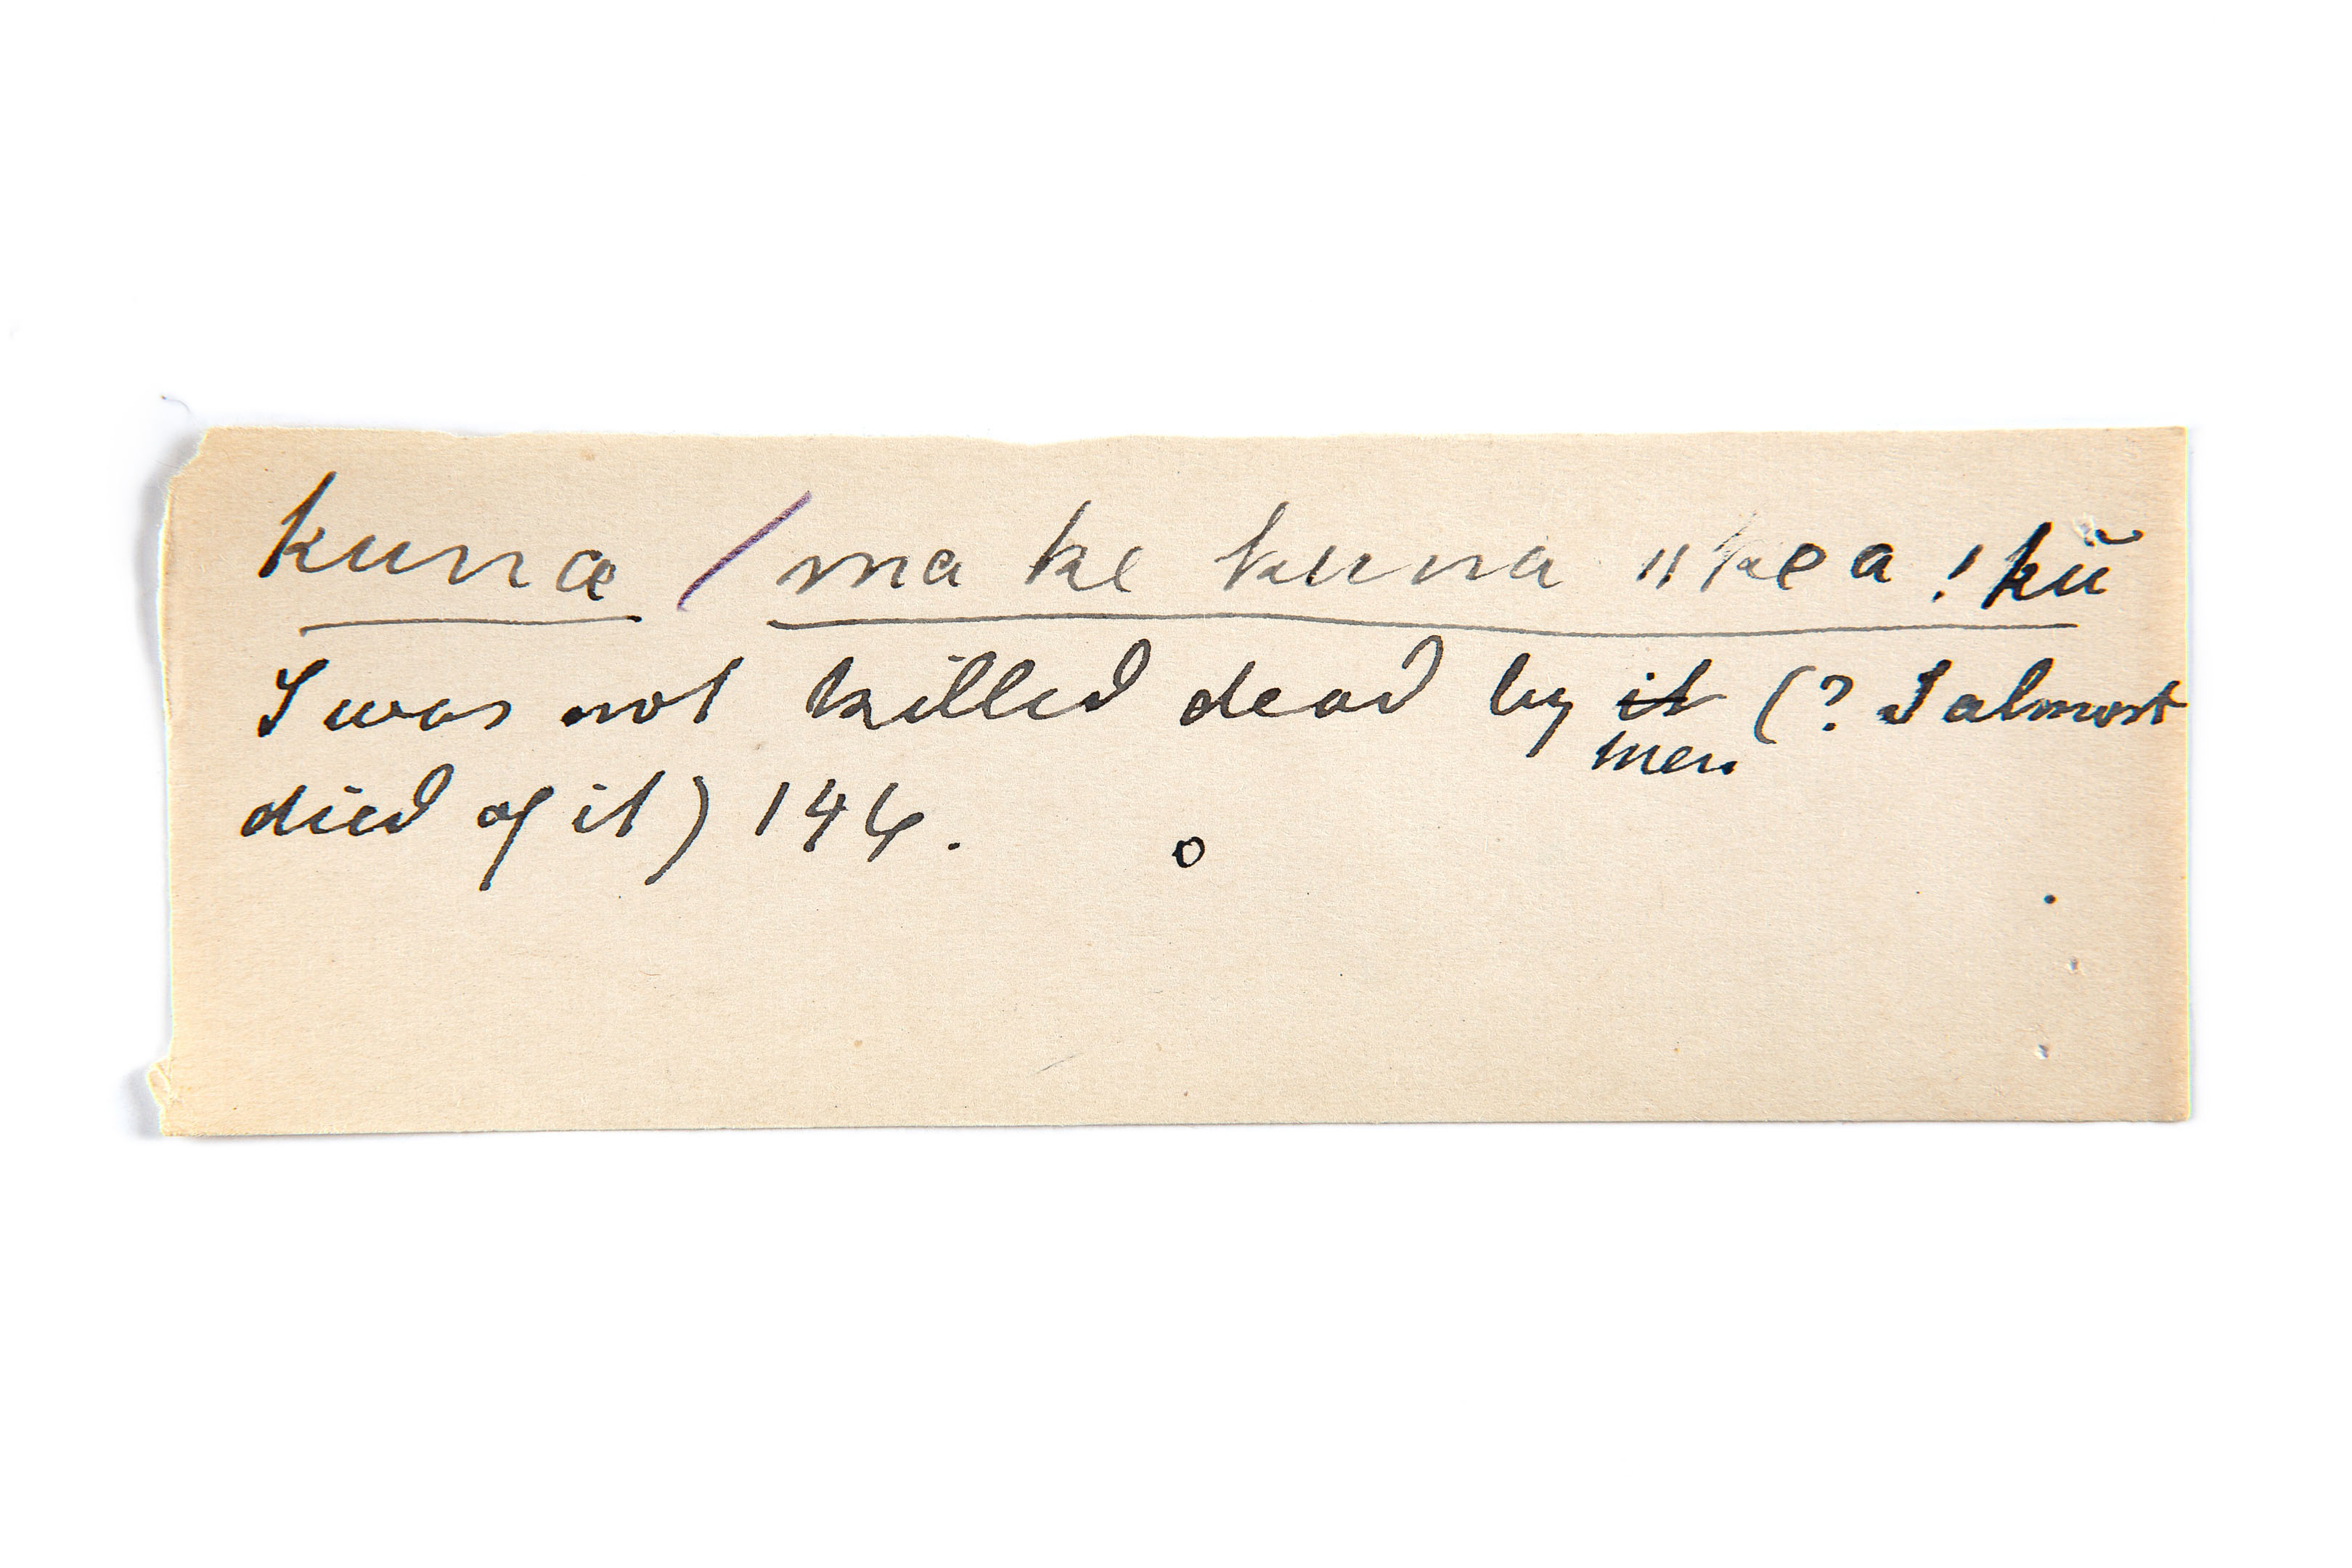 kuna / ma ke kuna ‖kea !kũ
I was not killed dead by ~~it~~ men (? I almost
died of it) 146. o